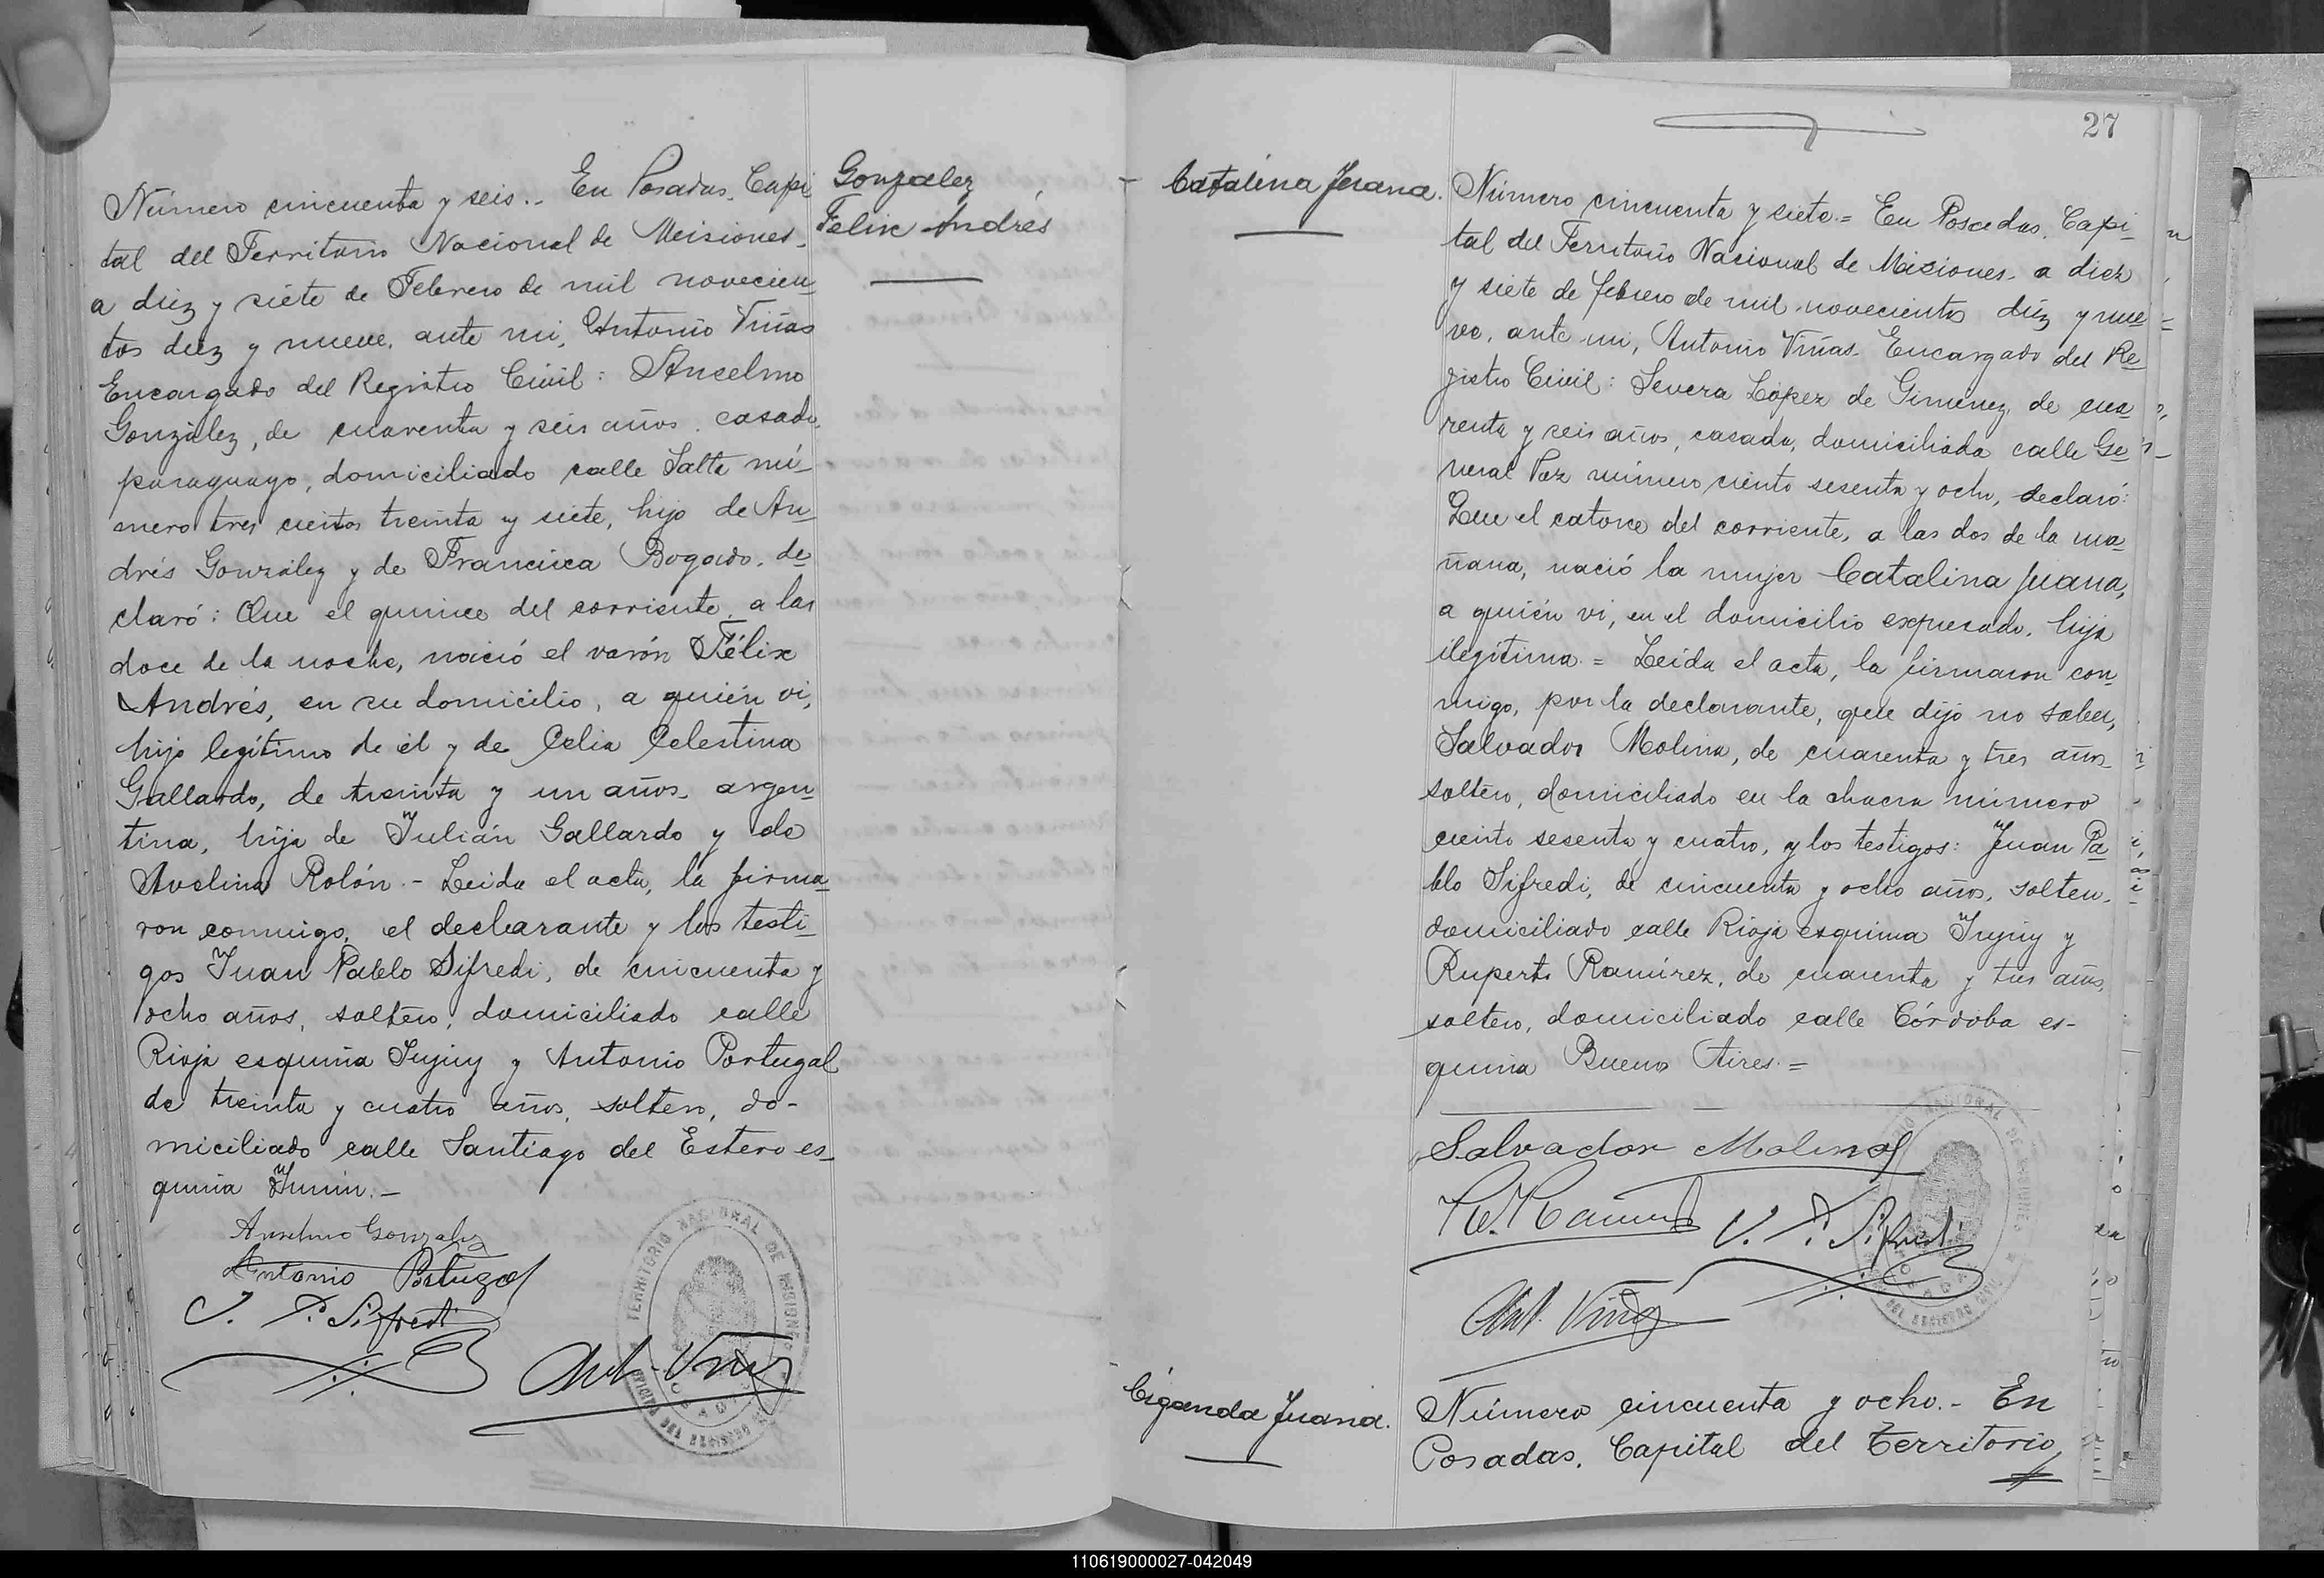 Número cincuenta y seis.- En Posadas, Capi
tal del Territorio Nacional de Misiones-
a diez y siete de Febrero de mil novecien-
tos diez y nueve, ante mi, Antonio Viñas
Encargado del Registro Civil: Anselmo
González, de cuarenta y seis años, casado,
paraguayo, domiciliado calle Salta nú-
mero tres cientos treinta y siete, hijo de An-
drés González y de Francisca Bogado, de-
claró: Que el quince del corriente, a las
doce de la noche, nació el varón Félix
Andrés, en su domicilio, a quién vi,
hijo legítimo de él y de Celia Celestina
Gallardo, de treinta y un años, argen-
tina, hija de Julián Gallardo y de
Avelina Rolón.- Leida el acta, la firma-
ron conmigo, el declarante y los testi-
gos Juan Pablo Sifredi, de cincuenta y
ocho años, soltero, domiciliado calle
Rioja esquina Jujuy y Antonio Portugal
de treinta y cuatro años, soltero, do-
miciliado calle Santiago del Estero es-
quina Junin.-
Anselmo Gonzalez
Antonio Portugal
J. P. Sifredi
Ant. Viñas
TERRITORIO NACIONAL DE MISIONES
OFICINA DEL REGISTRO CIVIL
POSADAS
Gonzalez
Felix Andrés
27
Catalina Juana.
Número cincuenta y siete.= En Posadas, Capi-
tal del Territorio Nacional de Misiones- a diez
y siete de febrero de mil novecientos diez y nue-
ve, ante mi, Antonio Viñas- Encargado del Re-
gistro Civil: Severa López de Gimenez, de cua-
renta y seis años, casada, domiciliada calle Ge-
neral Paz número ciento sesenta y ocho, declaró:
Que el catorce del corriente, a las dos de la ma-
ñana, nació la mujer Catalina Juana,
a quién vi, en el domicilio expresado, hija
ilegítima.= Leída el acta, la firmaron con-
migo, por la declarante, que dijo no saber,
Salvador Molina, de cuarenta y tres años
soltero, domiciliado en la chacra número
ciento sesenta y cuatro, y los testigos: Juan Pa-
blo Sifredi, de cincuenta y ocho años, soltero,
domiciliado calle Rioja esquina Jujuy y
Ruperto Ramírez, de cuarenta y tres años,
soltero, domiciliado calle Córdoba es-
quina Buenos Aires.=
Salvador Molina
J. P. Sifredi
Ant. Viñas
TERRITORIO NACIONAL DE MISIONES
OFICINA DEL REGISTRO CIVIL
POSADAS
Ciganda Juana.
Número cincuenta y ocho.- En
Posadas, Capital del Territorio
110619000027-042049